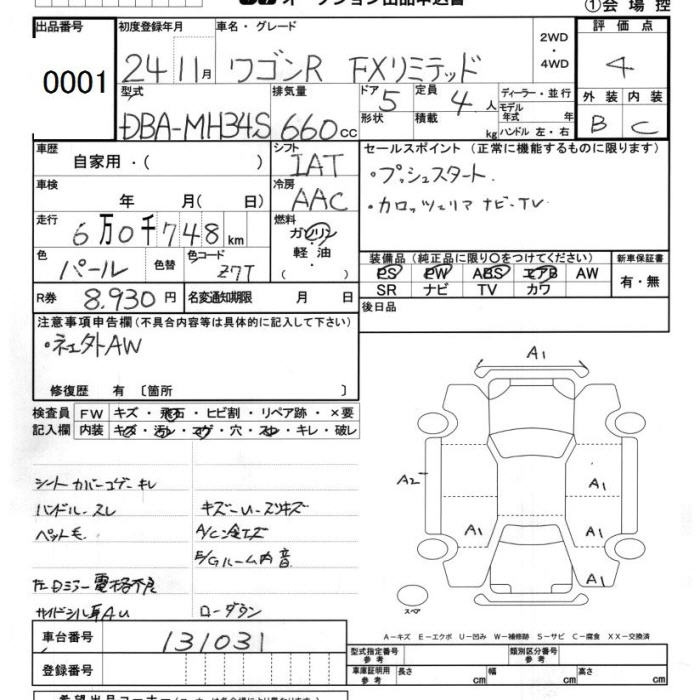 オークション出品申込書
①会場控
出品番号
0001
初度登録年月
24 11月
車名・グレード
ワゴンR FXリミテッド
2WD
・
4WD
評価点
4
外装 内装
B C
型式
DBA-MH34S
排気量
660cc
ドア 5
形状
定員 4人
積載 kg
ディーラー・並行
モデル年式 年
ハンドル 左・右
車歴
自家用・( )
シフト
IAT
セールスポイント (正常に機能するものに限ります)
・プッシュスタート.
・カロッツェリア ナビ・TV
車検
年 月( 日)
冷房
AAC
走行
6万0千748km
燃料
ガソリン
・
軽油
( )
色
パール
色替
色コード
Z7T
装備品 (純正品に限り○をつけてください)
PS PW ABS エアB AW
SR ナビ TV カワ
新車保証書
有・無
R券 8.930円
名変通知期限 月 日
後日品
注意事項申告欄(不具合内容等は具体的に記入して下さい)
・社外AW
修復歴 有〔箇所 〕
検査員記入欄
FW キズ・飛石・ヒビ割・リペア跡・×要
内装 キズ・汚レ・コゲ・穴・スレ・キレ・破レ
シートカバーコゲ・キレ
ハンドル・スレ
キズ・U・スリキズ
ペット毛
E/Gルーム内音
左Dミラー電格不良
サイドシル耳AU
ローダウン
A1
A2
A1
A1
A1
A1
スペア
A−キズ E−エクボ U−凹み W−補修跡 S−サビ C−腐食 XX−交換済
車台番号 131031
登録番号
型式指定番号
参考
類別区分番号
参考
車庫証明用
参考
長さ cm
幅 cm
高さ cm